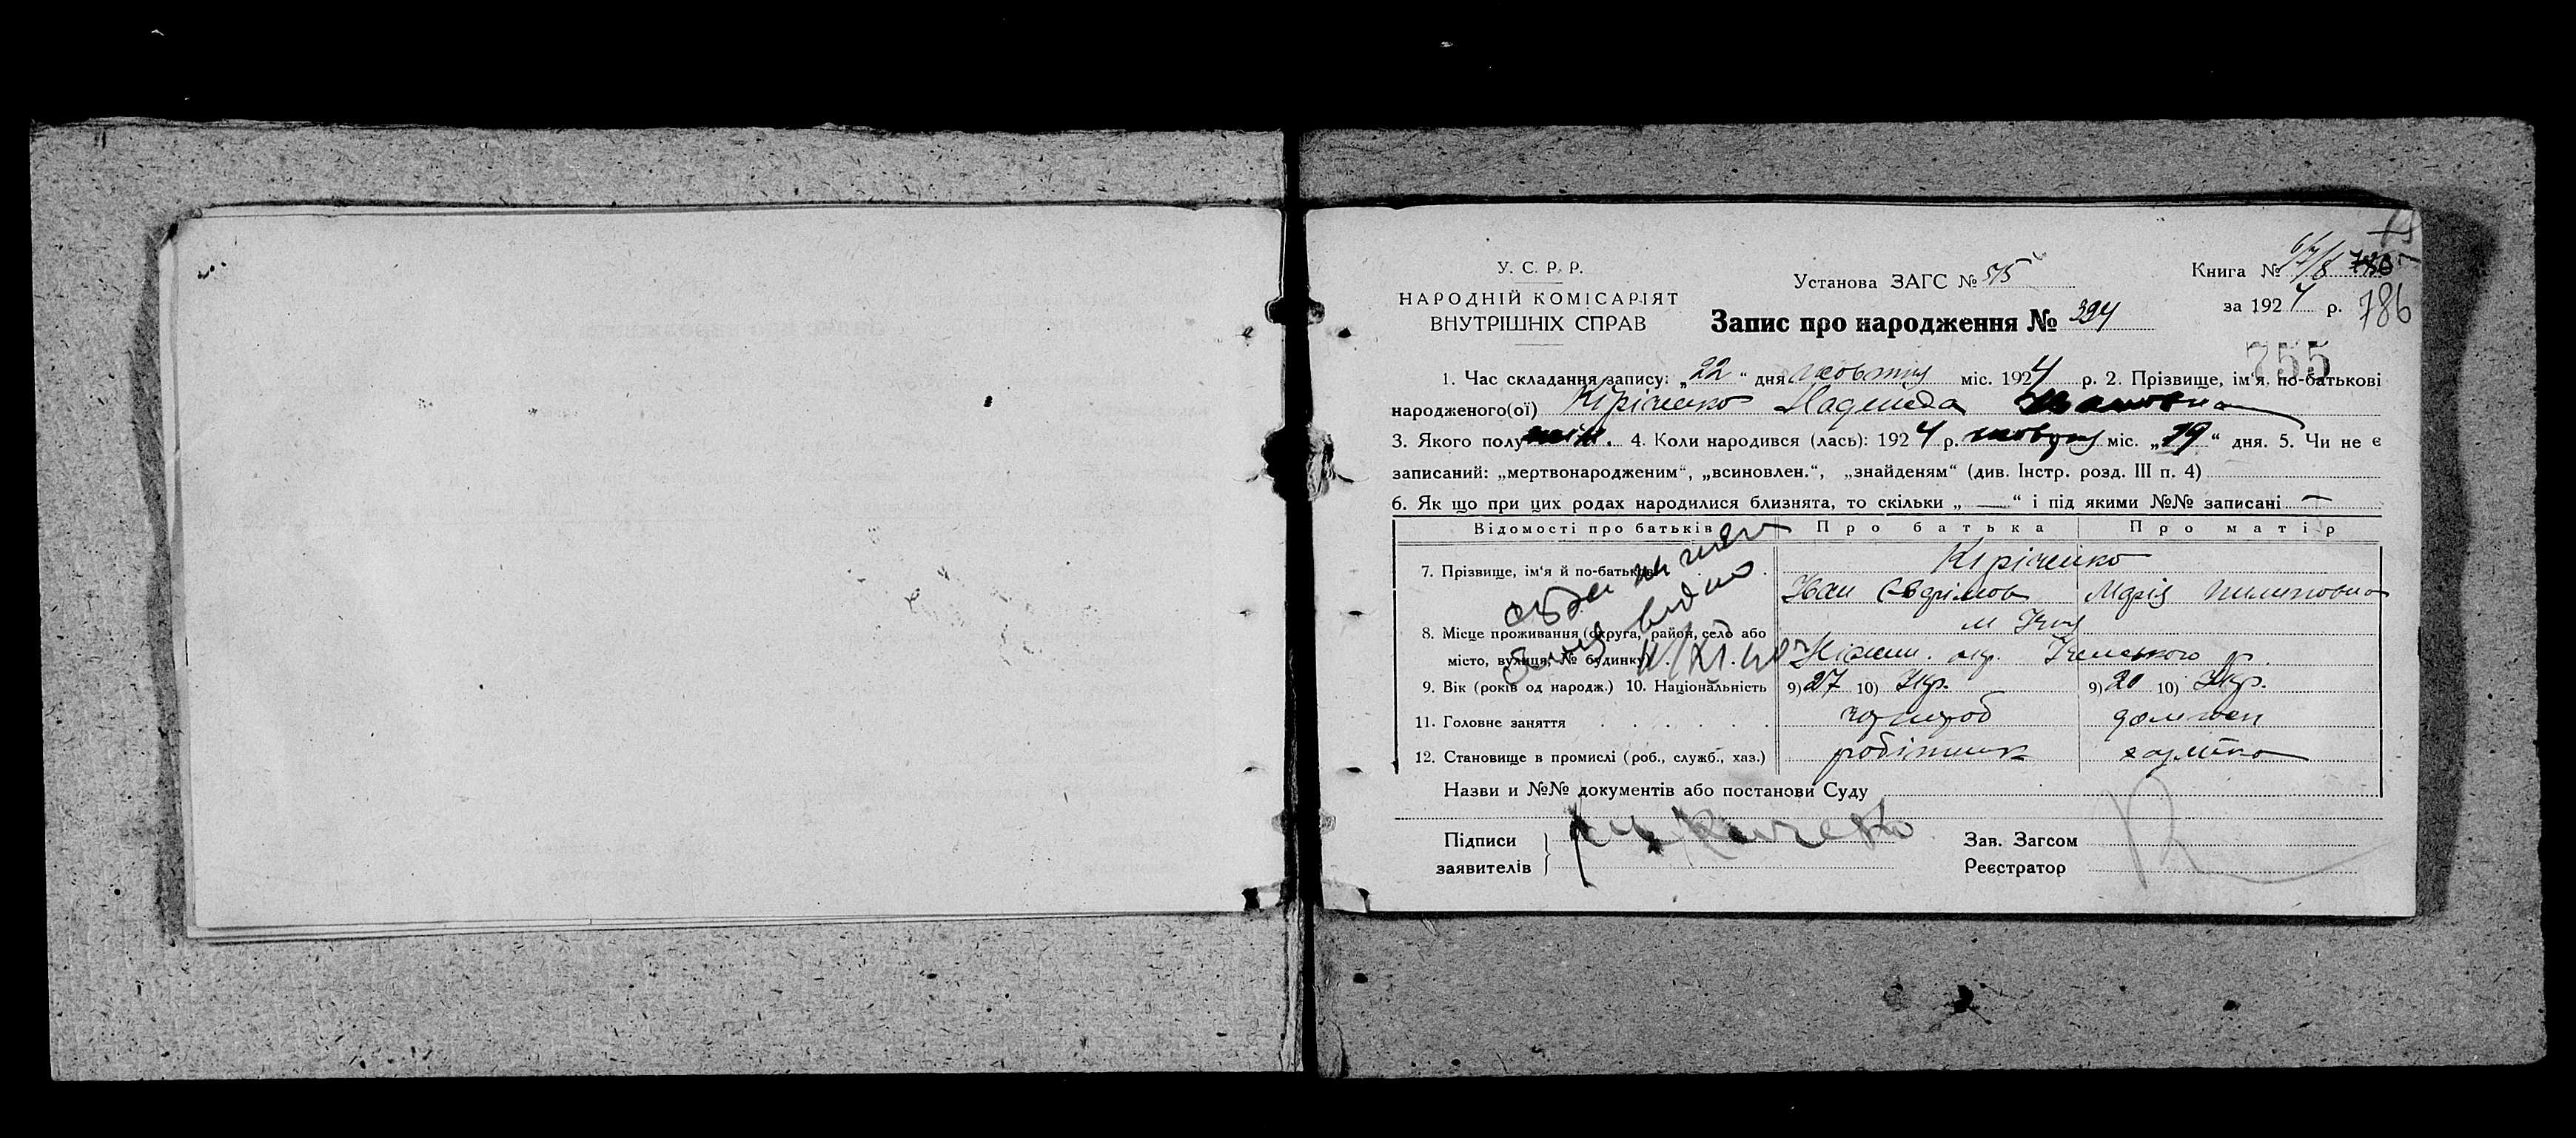 У. С. Р. Р.
НАРОДНІЙ КОМІСАРІЯТ
ВНУТРІШНІХ СПРАВ
Установа ЗАГС №
Запис про народження № 394
Книга №
за 1924 р.
786
755
1. Час складання запису: „22“ дня жовтня міс. 1924 р. 2. Прізвище, ім'я, по-батькові
народженого(ої) Кіріченко Надежда Ивановна
3. Якого полу жін. 4. Коли народився (лась): 1924 р. жовтня міс. „19“ дня. 5. Чи не є
записаний: „мертвонародженим“, „всиновлен.“, „знайденям“ (див. Інстр. розд. III п. 4)
6. Як що при цих родах народилися близнята, то скільки „—“ і під якими №№ записані —
Відомості про батьків Про батька Про матір
7. Прізвище, ім'я й по-батькові Кіріченко
Иван Марія Пилиповна
8. Місце проживання (округа, район, село або
місто, вулиця, № будинку) Ніжин. окр. р.
9. Вік (років од народж.) 10. Національність 9) 27 10) Укр. 9) 20 10) Укр.
11. Головне заняття
12. Становище в промислі (роб., служб., хаз.) робітник
Назви и №№ документів або постанови Суду
Підписи
заявителів
Зав. Загсом
Реєстратор